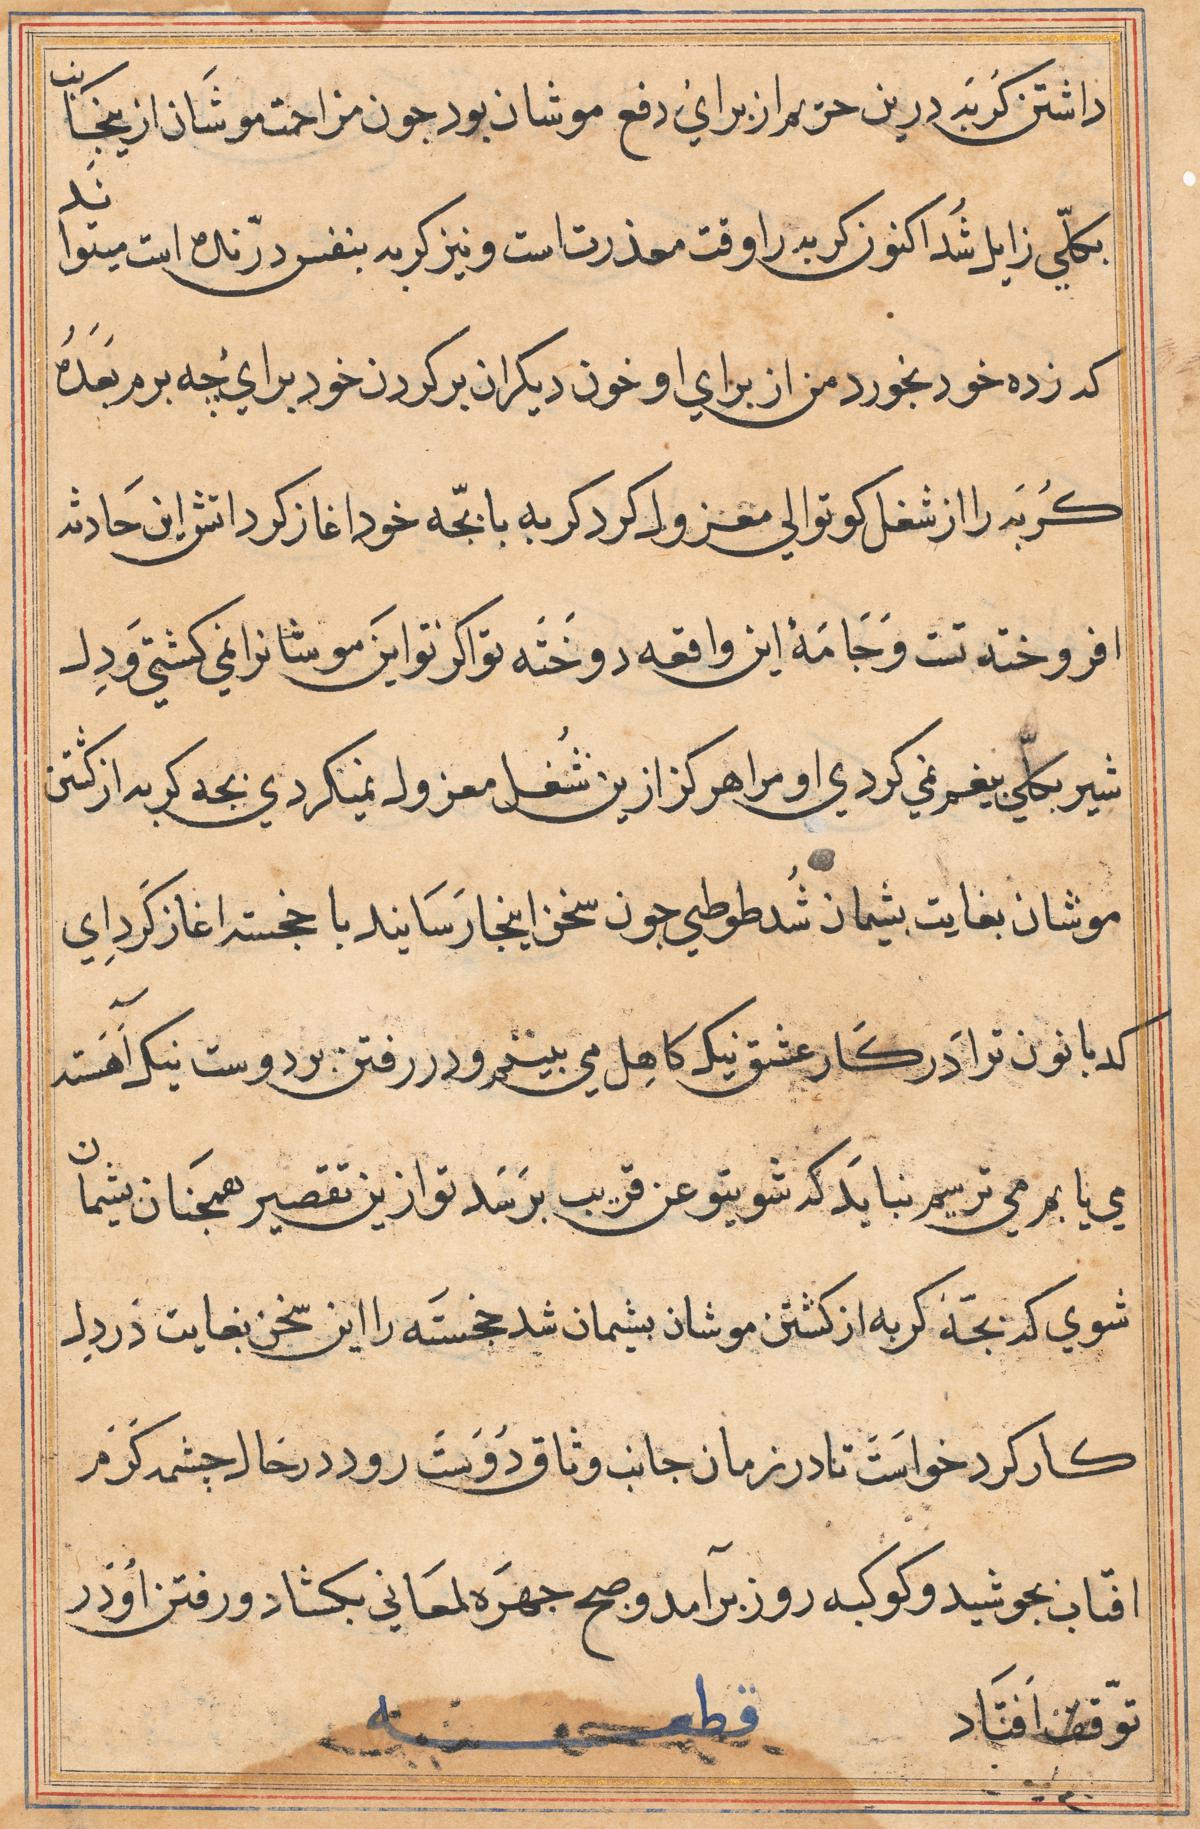 داشتن کُربَه درین حریم از برایُ دفع موشان بود جون مزاحمت موشَان از ینجَانب
بکلّي زایل شُد اکنون کربه را وقت معذرت است و نیز کربه بنفس درّنده است میتواند
که زده خود بخورد من از براي او خون دیکران بر کردن خود براي چه برم بَعدَهُ
کُربَه را از شغل کوتوالي معزول کرد کربه با بجّه خود اغاز کرد اتش این حَادثه
افروخته تست وَجَامَهٔ این واقعه دوخَته تو اکر تو این موشانرا نمي کشتي وَدِل
شیر بکلّي بیغم نمي کردي او مرا هرکز ازین شُغل معزول نمیکردي بجه کربه از کشتن
موشان بغایت بشیمان شُد طوطي جون سخن اینجا رَسَانید با خجسته اغاز کَرد اِي
کدبانون ترا دَر کَار عشق نیک کَاهِل مي بینم و در رفتن بر دوست نیک آهَسته
مي یابم مي ترسم نبایَد که شوي تو عن قریب برَسَد تو ازین تقصیر همجنَان بشیمان
شوي که بجّهٔ کربه از کشتن موشان بشیمان شد خجستَه را این سخن بغایت دَر دل
کار کرد خواسَتَ تا در زمان جانب وثاق دُوستَ رود در حَال جشمه کَرَم
افتاب بجوشید و کوکبه روز برآمد و صبح جهرَه لمعَاني بکشاد و رفتن اُو دَر
توّقف اَفتَاد قطعه